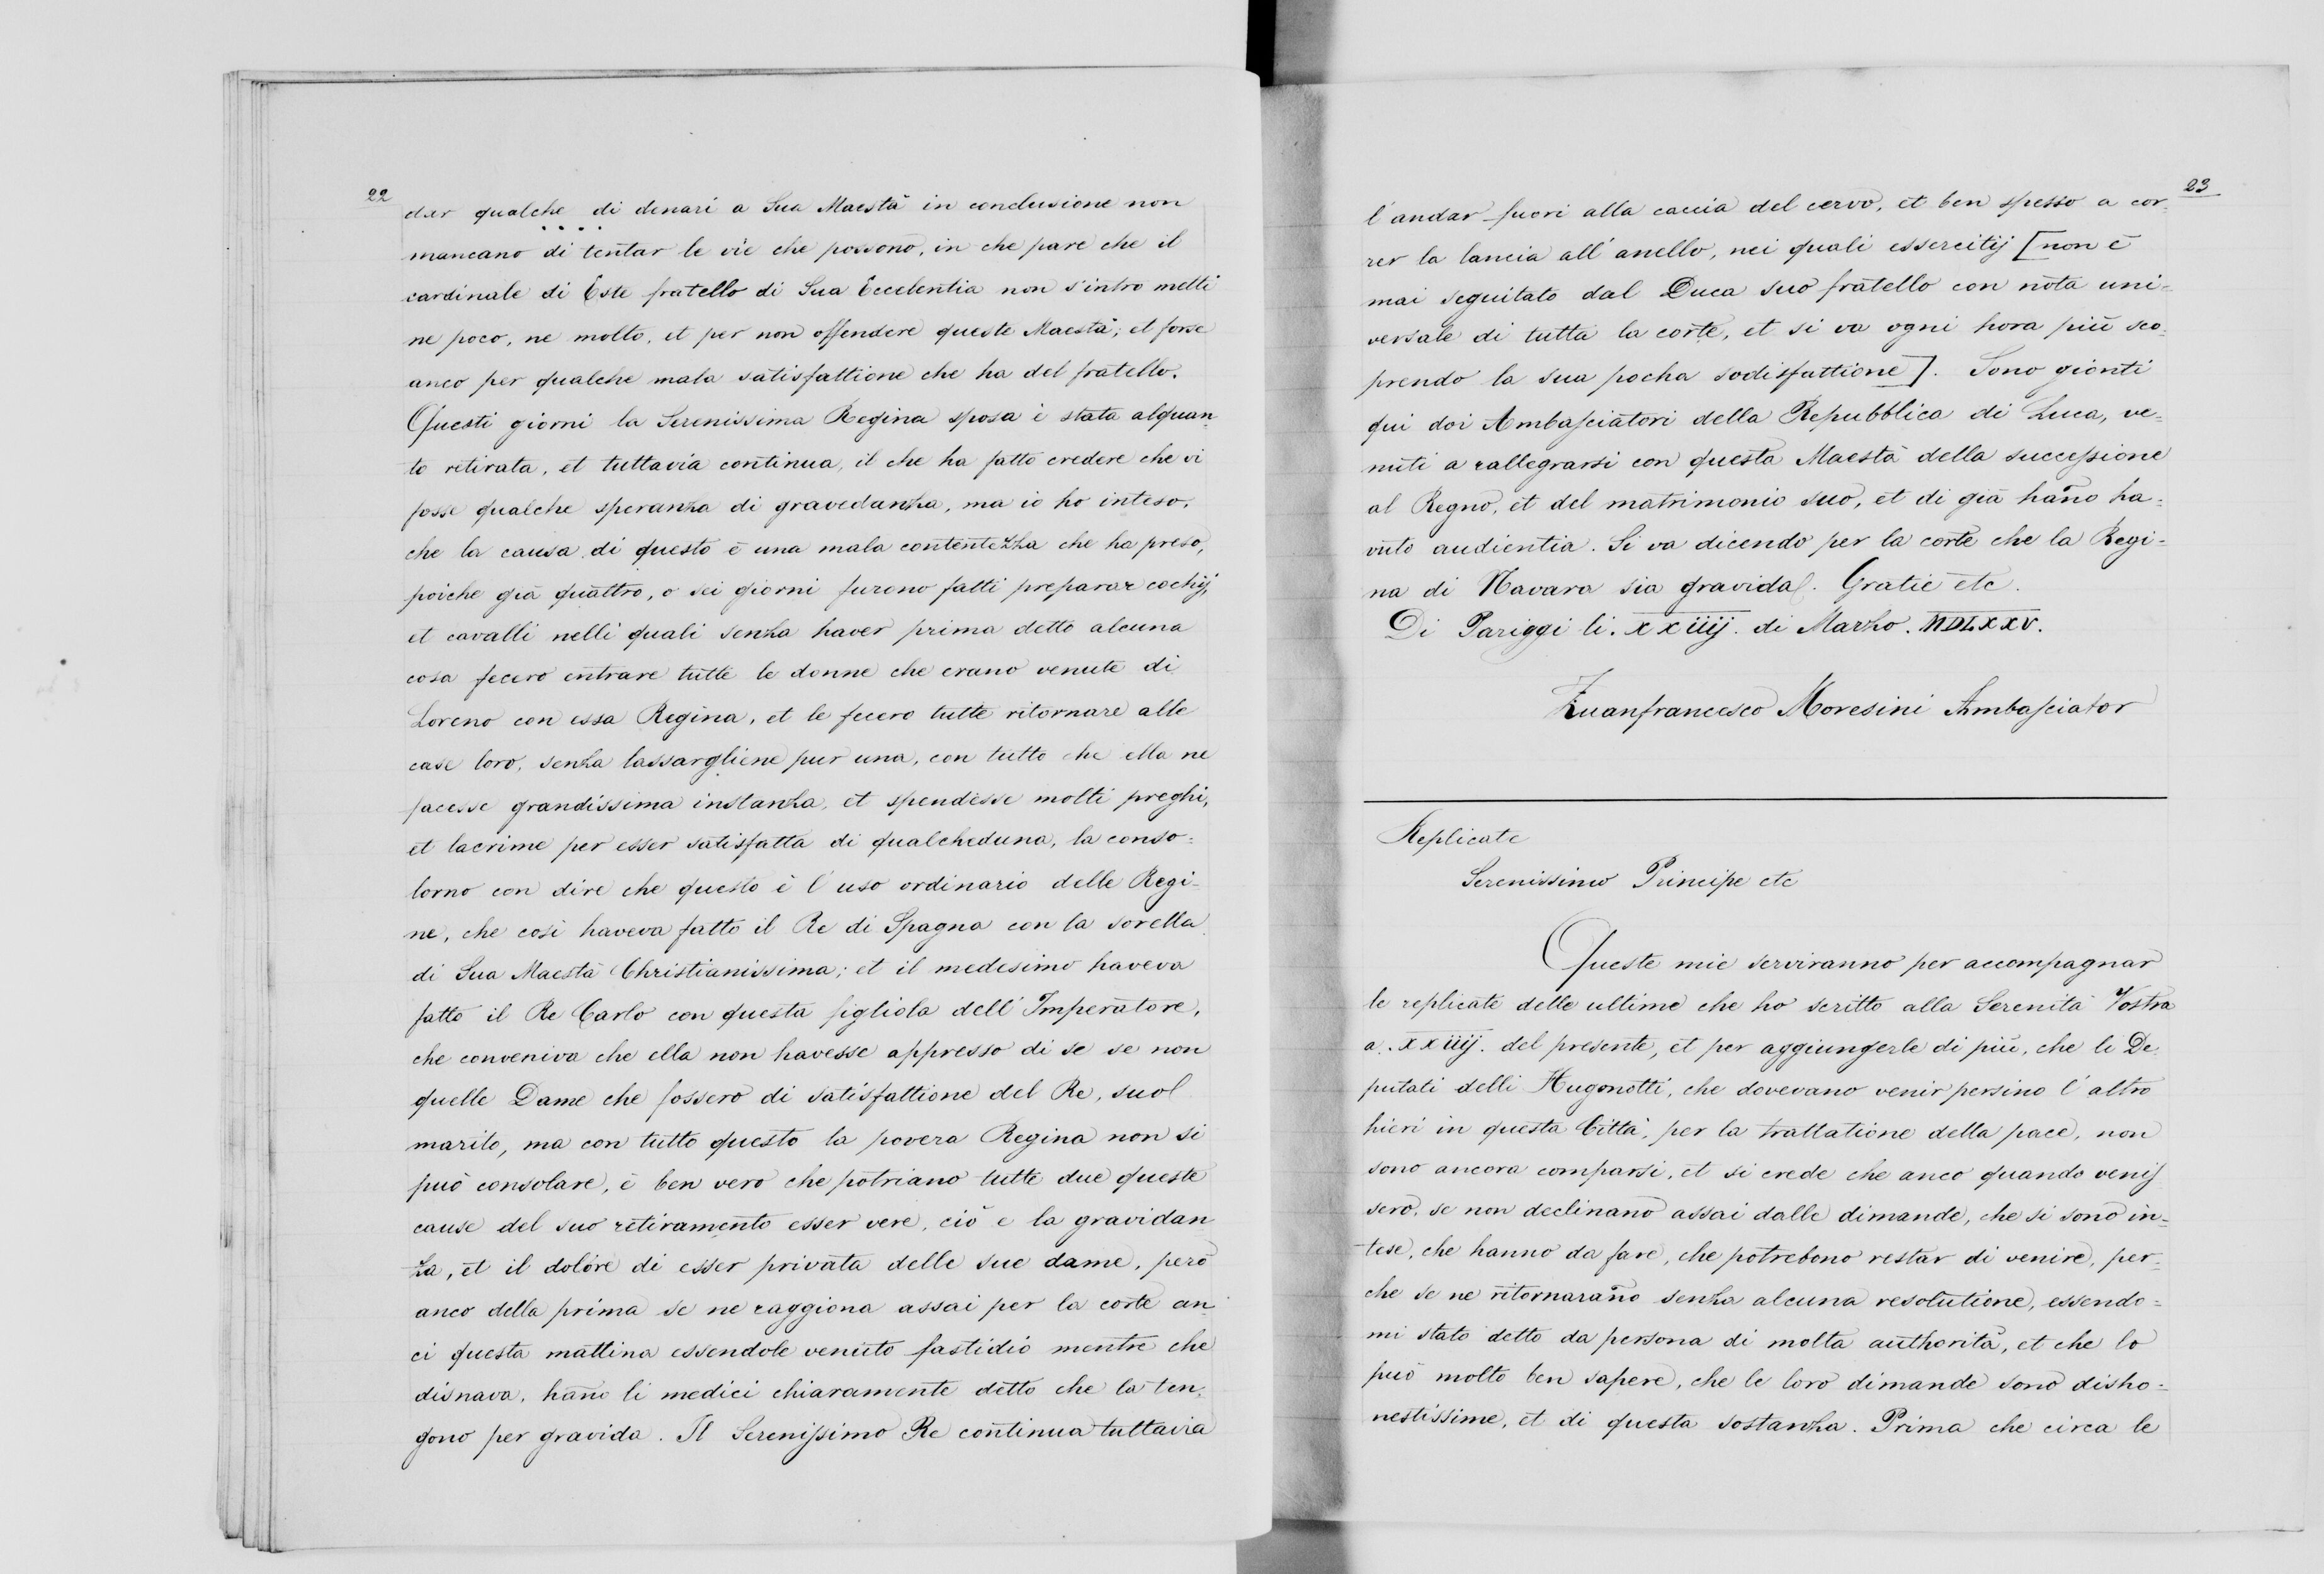 22
dar qualche di denari a Sua Maestà in conclusione non
. . . .
mancano di tentar le vie che possono, in che pare che il
cardinale di Este fratello di Sua Eccelentia non s'intro metti
ne poco, ne molto, et per non offendere queste Maestà; et forse
anco per qualche mala satisfattione che ha del fratello.
Questi giorni la Serenissima Regina sposa è stata alquan-
to retirata, et tuttavia continua, il che ha fatto credere che vi
fosse qualche speranza di gravedanza, ma io ho inteso,
che la causa di questo è una mala contentezza che ha preso,
poiche già quattro, o sei giorni furono fatti preparar cochij,
et cavalli nelli quali senza haver prima detto alcuna
cosa fecero entrare tutte le donne che erano venute di
Loreno con essa Regina, et le fecero tutte ritornare alle
case loro, senza lassargliene pur una, con tutto che ella ne
facesse grandissima instanza, et spendesse molti preghi,
et lacrime per esser satisfatta di qualcheduna, la conso=
lorno con dire che questo è l'uso ordinario delle Regi-
ne, che così haveva fatto il Re di Spagna con la sorella
di Sua Maestà Christianissima; et il medesimo haveva
fatto il Re Carlo con questa figliola dell'Imperatore,
che conveniva che ella non havesse appresso di se se non
quelle Dame che fossero di satisfattione del Re, suo
marito, ma con tutto questo la povera Regina non si
può consolare, è ben vero che potriano tutte due queste
cause del suo retiramento esser vere, ciò e la gravidan
za, et il dolore di esser privata delle sue dame, però
anco della prima se ne raggiona assai per la corte an
ci questa mattina essendole venuto fastidio mentre che
disnava, hano li medici chiaramente detto che la ten-
gono per gravida. Il Serenissimo Re continua tuttavia
23
l'andar fuori alla caccia del cervo, et ben spesso a cor-
rer la lancia all'anello, nei quali essercitij [non è
mai seguitato dal Duca suo fratello con nota uni-
versale di tutta la corte, et si va ogni hora più sco-
prendo la sua pocha sodisfattione]. Sono gionti
qui doi Ambasciatori della Repubblica di Luca, ve-
nuti a rallegrarsi con questa Maestà della successione
al Regno, et del matrimonio suo, et di già hano ha-
vuto audientia. Si va dicendo per la corte che la Regi-
na di Navara sia gravida. Gratie etc.
Di Pariggi li. XXIIIJ. di Marzo. MDLXXV.
Zuanfrancesco Moresini Ambasciator
Replicate
Serenissimo Principe etc
Queste mie serviranno per accompagnar
le replicate delle ultime che ho scritto alla Serenità Vostra
a. XXIIIJ. del presente, et per aggiungerle di più, che li De
putati delli Hugonotti, che dovevano venir persino l'altro
hieri in questa Città, per la trattatione della pace, non
sono ancora comparsi, et si crede che anco quando venis
sero, se non declinano assai dalle dimande, che si sono in-
tese, che hanno da fare, che potrebono restar di venire, per-
che se ne ritornarano senza alcuna resolutione, essendo=
mi stato detto da persona di molta authorità, et che lo
può molto ben sapere, che le loro dimande sono disho=
nestissime, et di questa sostanza. Prima che circa le